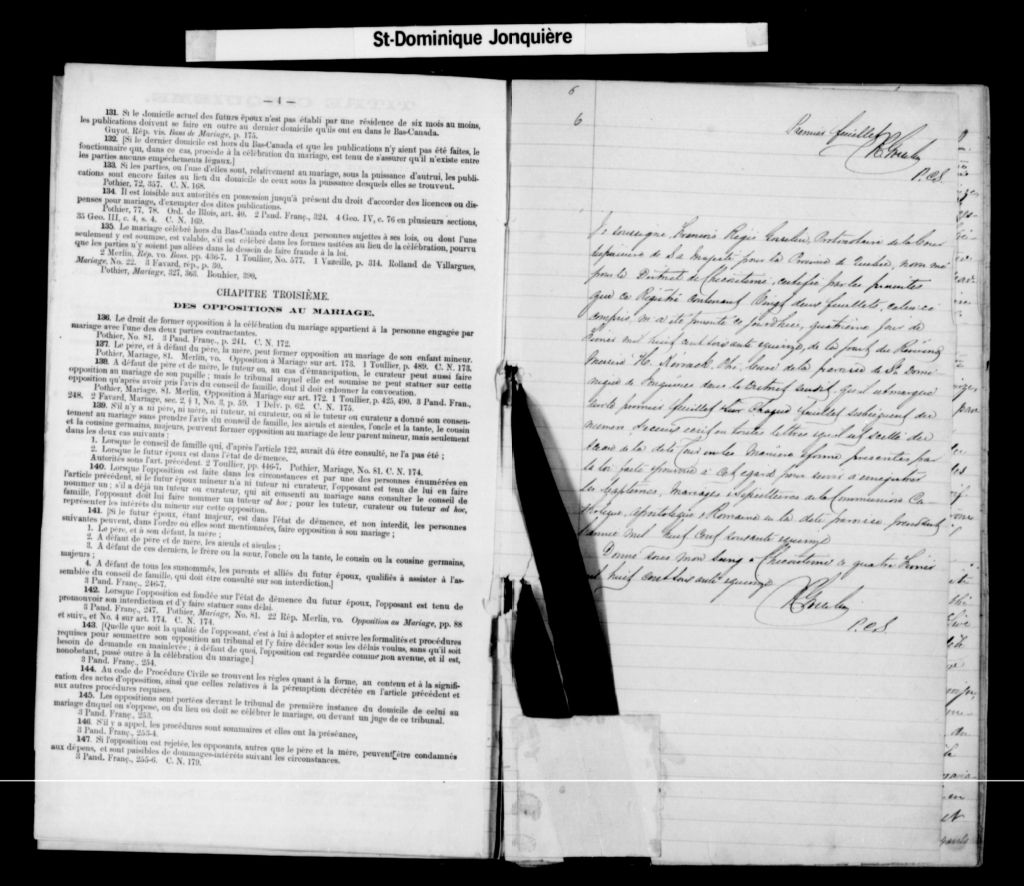 St-Dominique Jonquière
— 4 —
131. Si le domicile actuel des futurs époux n'est pas établi par une résidence de six mois au moins,
les publications doivent se faire en outre au dernier domicile qu'ils ont eu dans le Bas-Canada.
Guyot, Rép. vis. Bans de Mariage, p. 175.
132. [Si le dernier domicile est hors du Bas-Canada et que les publications n'y aient pas été faites, le
fonctionnaire qui, dans ce cas, procède à la célébration du mariage, est tenu de s'assurer qu'il n'existe entre
les parties aucuns empêchements légaux.]
133. Si les parties, ou l'une d'elles sont, relativement au mariage, sous la puissance d'autrui, les publi-
cations sont encore faites au lieu du domicile de ceux sous la puissance desquels elles se trouvent.
Pothier, 72, 357. C. N. 168.
134. Il est loisible aux autorités en possession jusqu'à présent du droit d'accorder des licences ou dis-
penses pour mariage, d'exempter des dites publications.
Pothier, 77, 78. Ord. de Blois, art. 40. 2 Pand. Franç., 324. 4 Geo. IV, c. 76 en plusieurs sections,
35 Geo. III, c. 4, s. 4. C. N. 169.
135. Le mariage célébré hors du Bas-Canada entre deux personnes sujettes à ses lois, ou dont l'une
seulement y est soumise, est valable, s'il est célébré dans les formes usitées au lieu de la célébration, pourvu
que les parties n'y soient pas allées dans le dessein de faire fraude à la loi.
2 Merlin, Rép. vo. Bans, pp. 436-7. 1 Toullier, No. 577. 1 Vazeille, p. 314. Rolland de Villargues,
Mariage, No. 22. 3 Favard, rép., p. 50.
Pothier, Mariage, 327, 363. Bouhier, 390.
CHAPITRE TROISIÈME.
DES OPPOSITIONS AU MARIAGE.
136. Le droit de former opposition à la célébration du mariage appartient à la personne engagée par
mariage avec l'une des deux parties contractantes.
Pothier, No. 81. 3 Pand. Franç., p. 241. C. N. 172.
137. Le père, et à défaut du père, la mère, peut former opposition au mariage de son enfant mineur.
Pothier, Mariage, 81. Merlin, vo. Opposition à Mariage sur art. 173. 1 Toullier, p. 489. C. N. 173.
138. A défaut de père et de mère, le tuteur, ou, au cas d'émancipation, le curateur peut aussi faire
opposition au mariage de son pupille; mais le tribunal auquel elle est soumise ne peut statuer sur cette
opposition qu'après avoir pris l'avis du conseil de famille, dont il doit ordonner la convocation.
Pothier, Mariage, 81. Merlin, Opposition à Mariage sur art. 172. 1 Toullier, p. 425, 490. 3 Pand. Fran.,
248. 2 Favard, Mariage, sec. 2 § 1, No. 3, p. 59. 1 Delv. p. 62. C. N. 175.
139. S'il n'y a ni père, ni mère, ni tuteur, ni curateur, ou si le tuteur ou curateur a donné son consen-
tement au mariage sans prendre l'avis du conseil de famille, les aïeuls et aïeules, l'oncle et la tante, le cousin
et la cousine germains, majeurs, peuvent former opposition au mariage de leur parent mineur, mais seulement
dans les deux cas suivants:
1. Lorsque le conseil de famille qui, d'après l'article 122, aurait dû être consulté, ne l'a pas été;
2. Lorsque le futur époux est dans l'état de démence.
Autorités sous l'art. précédent. 2 Toullier, pp. 446-7. Pothier, Mariage, No. 81. C. N. 174.
140. Lorsque l'opposition est faite dans les circonstances et par une des personnes énumérées en
l'article précédent, si le futur époux mineur n'a ni tuteur ni curateur, l'opposant est tenu de lui en faire
nommer un; s'il a déjà un tuteur ou curateur, qui ait consenti au mariage sans consulter le conseil de
famille, l'opposant doit lui faire nommer un tuteur ad hoc; pour les tuteur, curateur ou tuteur ad hoc,
représenter les intérêts du mineur sur cette opposition.
141. [Si le futur époux, étant majeur, est dans l'état de démence, et non interdit, les personnes
suivantes peuvent, dans l'ordre où elles sont mentionnées, faire opposition à son mariage;
1. Le père, et à son défaut, la mère;
2. A défaut de père et de mère, les aïeuls et aïeules;
3. A défaut de ces derniers, le frère ou la sœur, l'oncle ou la tante, le cousin ou la cousine germains,
majeurs;
4. A défaut de tous les susnommés, les parents et alliés du futur époux, qualifiés à assister à l'as-
semblée du conseil de famille, qui doit être consulté sur son interdiction.]
3 Pand. Franç., 246-7.
142. Lorsque l'opposition est fondée sur l'état de démence du futur époux, l'opposant est tenu de
promouvoir son interdiction et d'y faire statuer sans délai.
3 Pand. Franç., 247. Pothier, Mariage, No. 81. 22 Rép. Merlin, vo. Opposition au Mariage, pp. 88
et suiv., et No. 4 sur art. 174. C. N. 174.
143. [Quelle que soit la qualité de l'opposant, c'est à lui à adopter et suivre les formalités et procédures
requises pour soumettre son opposition au tribunal et l'y faire décider sous les délais voulus, sans qu'il soit
besoin de demande en mainlevée; à défaut de quoi, l'opposition est regardée comme non avenue, et il est,
nonobstant, passé outre à la célébration du mariage.]
3 Pand. Franç., 254.
144. Au code de Procédure Civile se trouvent les règles quant à la forme, au contenu et à la signifi-
cation des actes d'opposition, ainsi que celles relatives à la péremption décrétée en l'article précédent et
aux autres procédures requises.
145. Les oppositions sont portées devant le tribunal de première instance du domicile de celui au
mariage duquel on s'oppose, ou du lieu où doit se célébrer le mariage, ou devant un juge de ce tribunal.
3 Pand. Franç., 253.
146. S'il y a appel, les procédures sont sommaires et elles ont la préséance,
3 Pand. Franç., 253-4.
147. Si l'opposition est rejetée, les opposants, autres que le père et la mère, peuvent être condamnés
aux dépens, et sont passibles de dommages-intérêts suivant les circonstances.
3 Pand. Franç., 255-6. C. N. 179.
6
6
Premier feuillet
P.C.S.
Je soussigné, François Régis Gosselin, Protonotaire de la Cour
Supérieure de Sa Majesté pour la Province de Québec, nommé
pour le District de Chicoutimi, certifie par les présentes
que ce Régistre contenant Vingt deux feuillets, celui-ci
compris, m'a été présenté ce jourd'hui, quatrième jour de
Février mil huit cent soixante et quinze, de la part du Révérend
Messire H. Kéroack Ptre, Curé de la paroisse de St Domi
nique de Jonquière dans le District susdit, qu'il est marqué
sur le premier feuillet et sur chaque feuillet subséquent du
numéro d'icelui écrit en toutes lettres et qu'il est scellé du
Sceau de la dite Cour en la manière et forme prescrites par
la loi faite et pourvue à cet égard pour servir à enregistrer
les Baptêmes, Mariages & Sépultures de la Communion Ca
tholique, Apostolique & Romaine en la dite paroisse, pendant
l'année mil huit cent soixante et quinze
Donné sous mon Seing à Chicoutimi ce quatre Février
mil huit cent soixante et quinze
P.C.S.